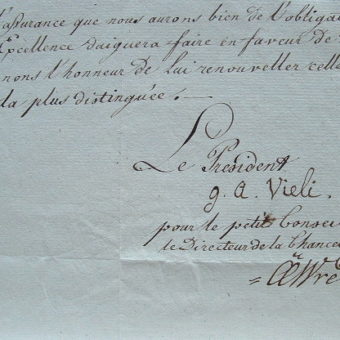 l'assurance que nous aurons bien de l'obliga
Excellence daignera faire en faveur de
nons l'honneur de lui renouveller celle
la plus distinguée.
Le President
g. A. Vieli.
pour le petit Consei
le Directeur de la Chance
Wre